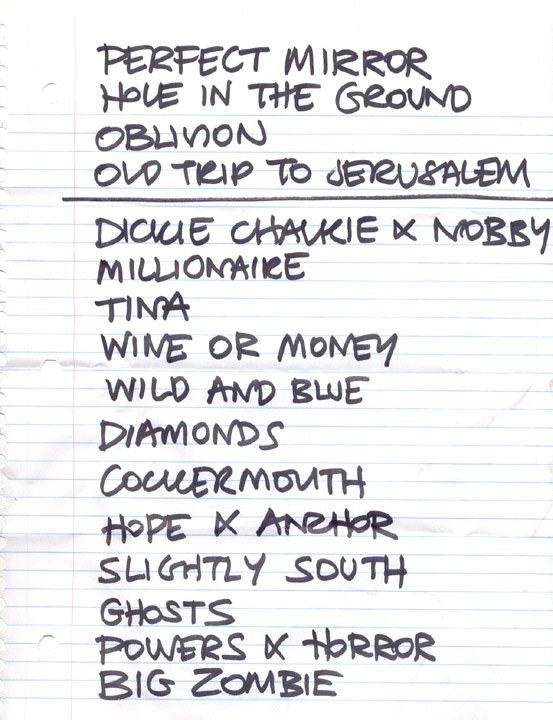 PERFECT MIRROR
HOLE IN THE GROUND
OBLIVION
OLD TRIP TO JERUSALEM
DICKIE CHALKIE & NOBBY
MILLIONAIRE
TINA
WINE OR MONEY
WILD AND BLUE
DIAMONDS
COCKERMOUTH
HOPE & ANCHOR
SLIGHTLY SOUTH
GHOSTS
POWERS & HORROR
BIG ZOMBIE